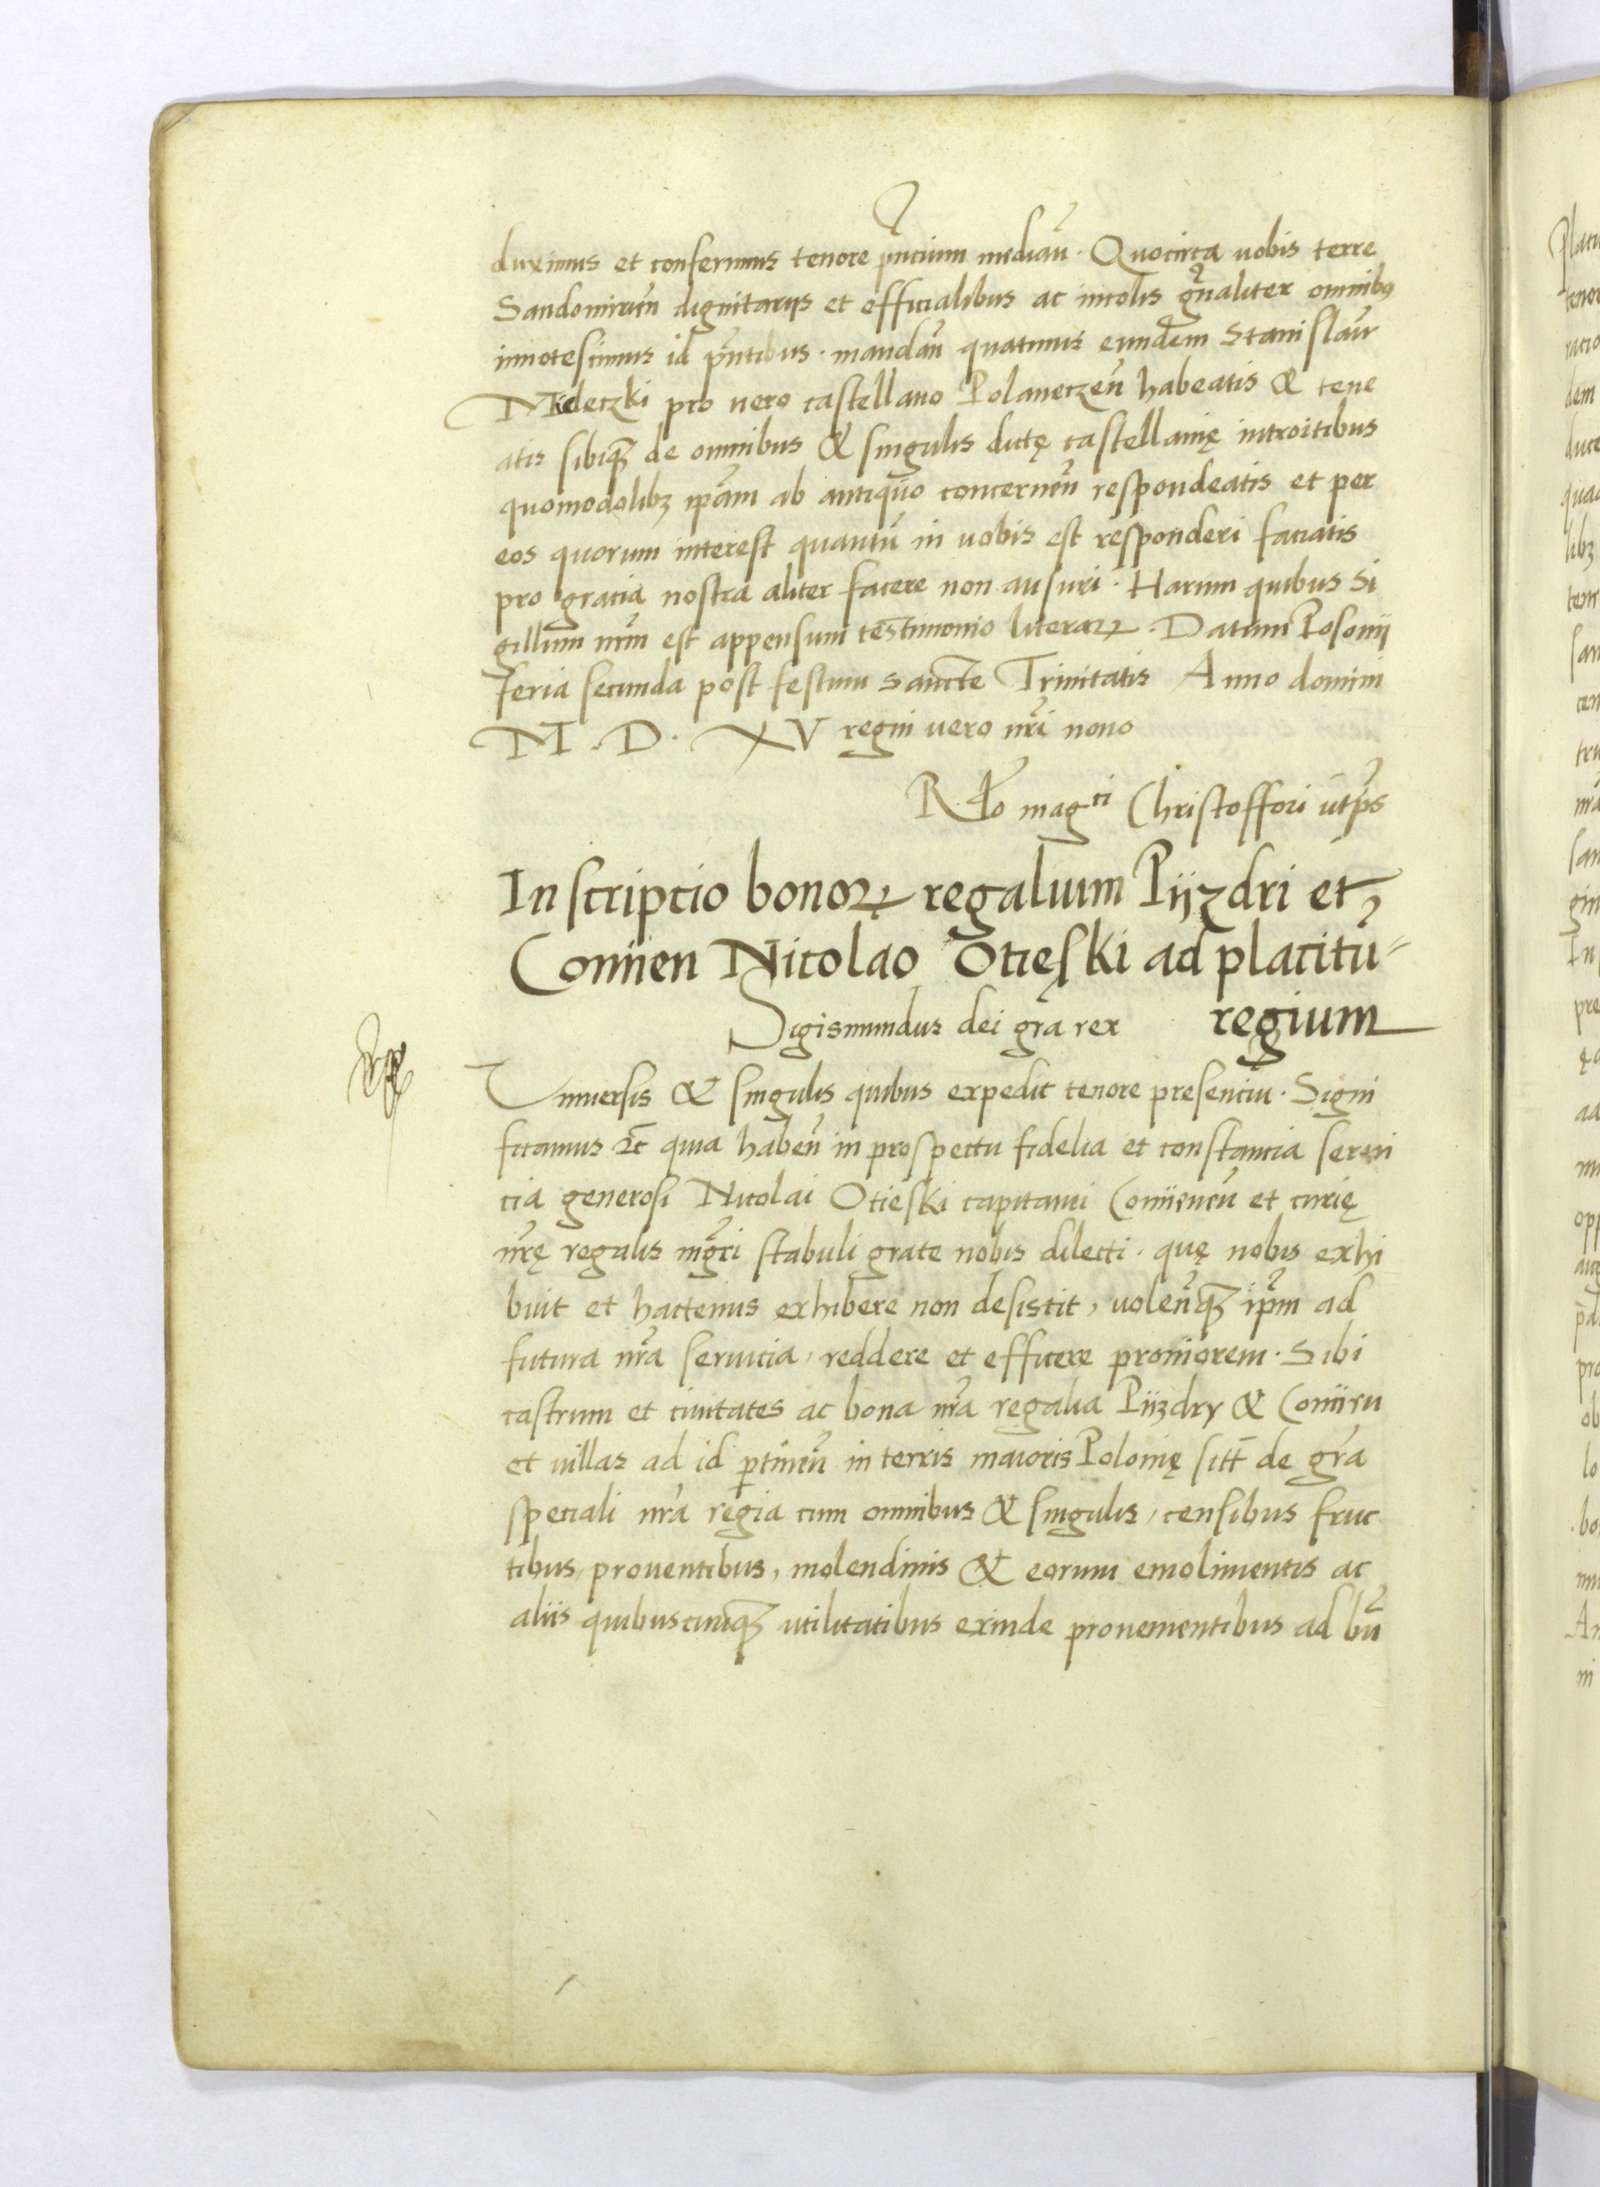 duximus et conferimus tenore pn̄cium median̄. Quocirca uobis terre
Sandomirien̄ dignitarijs et officialibus ac incolis gn̄aliter omnibꝰ
innotescimus id pn̄tibus. mandan̄ quatinus eundem Stanislau͂
Mideczki pro uero castellano Polaneczen̄ habeatis & tene
atis sibiqꝫ de omnibus & singulis dictę castellanię introitibus
quomodolibꝫ ip̄am ab antiquo concernen̄ respondeatis et per
eos quorum interest quantū in uobis est responderi faciatis
pro gracia nostra aliter facere non ausuri. Harum quibus Si
gillum nr̄m est appensum testimonio literaꝝ. Datum Posonij
feria secunda post festum sancte Trinitatis Anno domini
M. D. XV regni vero nr̄i nono
R. ꝑło mag^ci Christoffori ut ps̄
Inscripcio bonoꝝ regalium Pijzdri et
Coniien Nicolao Ocięski ad placitū
regium
Sigismundus dei grā rex
Vniuersis & singulis quibus expedit tenore presenciū. Signi
ficamus ⁊c̄ quia haben̄ in prospectu fidelia et constancia serui
cia generosi Nicolai Ocieski capitanei Coniienen̄ et curię
nr̄ę regalis mgr̄i stabuli grate nobis dilecti. quę nobis exhi
buit et hactenus exhibere non desistit, uolen̄qꝫ ip̄m ad
futura nr̄a seruicia, reddere et efficere proniorem. Sibi
castrum et ciuitates ac bona nr̄a regalia Pijzdry & Coniien
et uillas ad id ꝑtinen̄ in terris maioris Polonię sitt̄ de gr̄a
speciali nr̄a regia cum omnibus & singulis, censibus fruc
tibus, prouentibus, molendinis & eorum emolimentis ac
aliis quibuscunqꝫ utilitatibus exinde prouenientibus ad bn̄